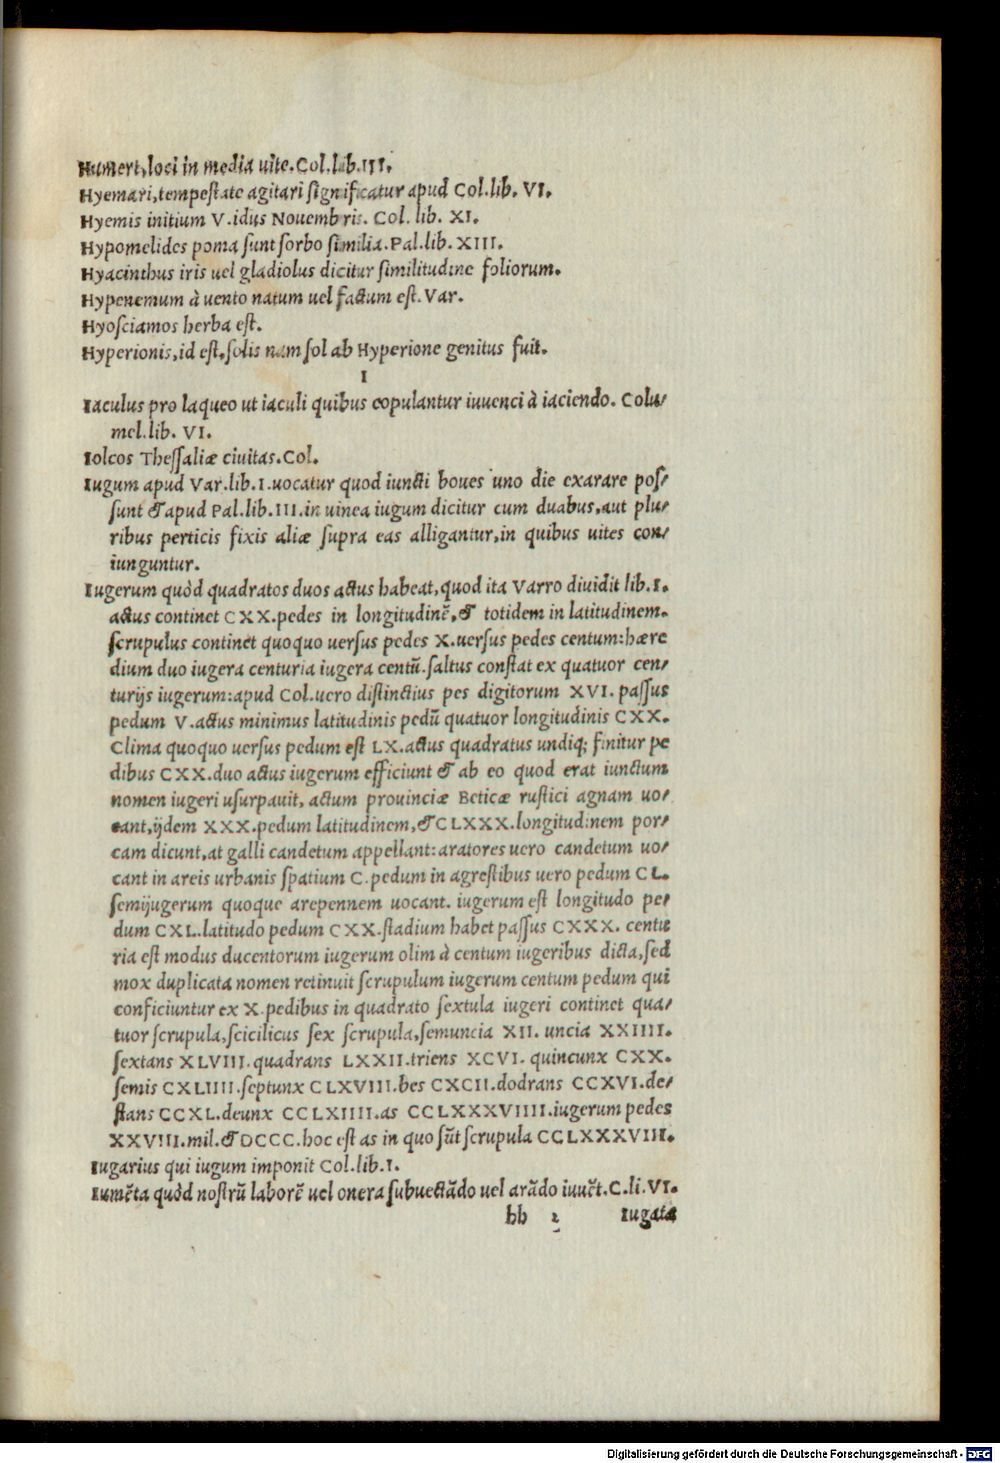 Humeri, loci in media uite. Col. lib. III.
Hyemari, tempestate agitari significatur apud Col. lib. VI.
Hyemis initium V. idus Nouembris. Col. lib. XI.
Hypomelides poma sunt sorbo similia. Pal. lib. XIII.
Hyacinthus iris uel gladiolus dicitur similitudine foliorum.
Hypenemum à uento natum uel factum est. Var.
Hyosciamos herba est.
Hyperionis, id est, solis nam sol ab Hyperione genitus fuit.
I
Iaculus pro laqueo ut iaculi quibus copulantur iuuenci à iaciendo. Colu/
mel. lib. VI.
Iolcos Thessaliæ ciuitas. Col.
Iugum apud Var. lib. I. uocatur quod iuncti boues uno die exarare pos/
sunt & apud Pal. lib. III. in uinea iugum dicitur cum duabus, aut plu/
ribus perticis fixis aliæ supra eas alligantur, in quibus uites con/
iunguntur.
Iugerum quòd quadratos duos actus habeat, quod ita Varro diuidit lib. I.
actus continet CXX. pedes in longitudinē, & totidem in latitudinem.
scrupulus continet quoquo uersus pedes X. uersus pedes centum: hære
dium duo iugera centuria iugera centū. saltus constat ex quatuor cen/
turijs iugerum: apud Col. uero distinctius pes digitorum XVI. passus
pedum V. actus minimus latitudinis pedū quatuor longitudinis CXX.
Clima quoquo uersus pedum est LX. actus quadratus undiq; finitur pe
dibus CXX. duo actus iugerum efficiunt & ab eo quod erat iunctum
nomen iugeri usurpauit, actum prouinciæ Beticæ rustici agnam uo/
cant, ijdem XXX. pedum latitudinem, & CLXXX. longitudinem por/
cam dicunt, at galli candetum appellant: aratores uero candetum uo/
cant in areis urbanis spatium C. pedum in agrestibus uero pedum CL.
semijugerum quoque arepennem uocant. iugerum est longitudo pe/
dum CXL. latitudo pedum CXX. stadium habet passus CXXX. centu
ria est modus ducentorum iugerum olim à centum iugeribus dicta, sed
mox duplicata nomen retinuit scrupulum iugerum centum pedum qui
conficiuntur ex X. pedibus in quadrato sextula iugeri continet qua/
tuor scrupula, scicilicus sex scrupula, semuncia XII. uncia XXIIII.
sextans XLVIII. quadrans LXXII. triens XCVI. quincunx CXX.
semis CXLIIII. septunx CLXVIII. bes CXCII. dodrans CCXVI. de/
stans CCXL. deunx CCLXIIII. as CCLXXXVIIII. iugerum pedes
XXVIII. mil. & DCCC. hoc est as in quo sūt scrupula CCLXXXVIII.
Iugarius qui iugum imponit Col. lib. I.
Iumēta quòd nostrū laborē uel onera subuectādo uel arādo iuuēt. C. li. VI.
bb 2 Iugata
Digitalisierung gefördert durch die Deutsche Forschungsgemeinschaft - DFG